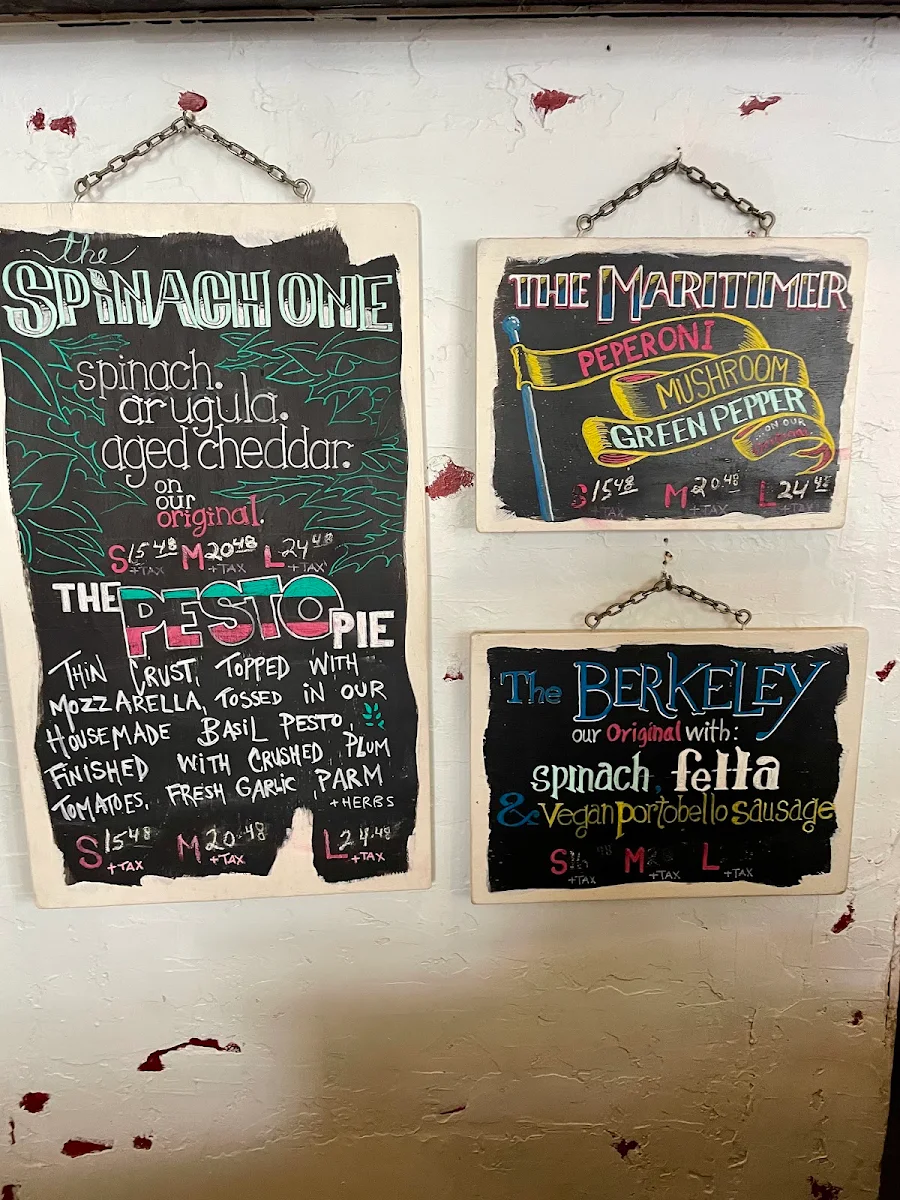 the
SPINACH ONE
spinach.
arugula.
aged cheddar.
on
our
original.
S 15.48 M 20.48 L 24.48
+TAX +TAX +TAX
THE PESTO PIE
THIN CRUST, TOPPED WITH
MOZZARELLA, TOSSED IN OUR
HOUSEMADE BASIL PESTO,
FINISHED WITH CRUSHED PLUM
TOMATOES, FRESH GARLIC, PARM
+HERBS
S 15.48 M 20.48 L 24.48
+TAX +TAX +TAX
THE MARITIMER
PEPERONI
MUSHROOM
GREEN PEPPER
ON OUR
S 15.48 M 20.48 L 24.48
+TAX +TAX +TAX
The BERKELEY
our Original with:
spinach, fetta
& vegan portobello sausage
S M L
+TAX +TAX +TAX